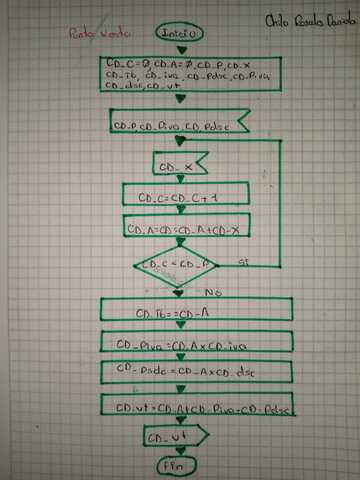 Punto Venta
Inicio
CD_C=0, CD_A=0, CD_P, CD_X
CD_Tb, CD_iva, CD_Pdsc, CD_Piva,
CD_dsc, CD_vt
CD_P, CD_Piva, CD_Pdsc
CD_X
CD_C=CD_C+1
CD_A=CD=CD_A+CD-X
CD_C < CD_P
SI
NO
CD_Tb==CD-A
CD_Piva=CD_A x CD_iva
CD_Psdc=CD_A x CD_dsc
CD_vt=CD_A+CD_Piva-CD_Pdsc
CD_vt
Fin